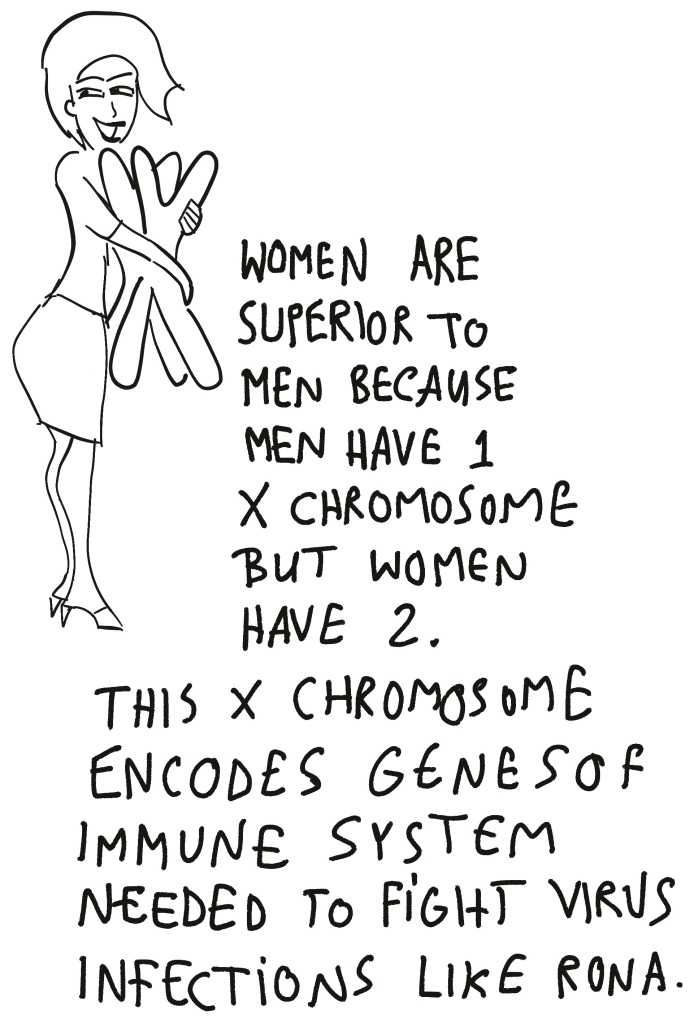 WOMEN ARE
SUPERIOR TO
MEN BECAUSE
MEN HAVE 1
X CHROMOSOME
BUT WOMEN
HAVE 2.
THIS X CHROMOSOME
ENCODES GENES OF
IMMUNE SYSTEM
NEEDED TO FIGHT VIRUS
INFECTIONS LIKE RONA.